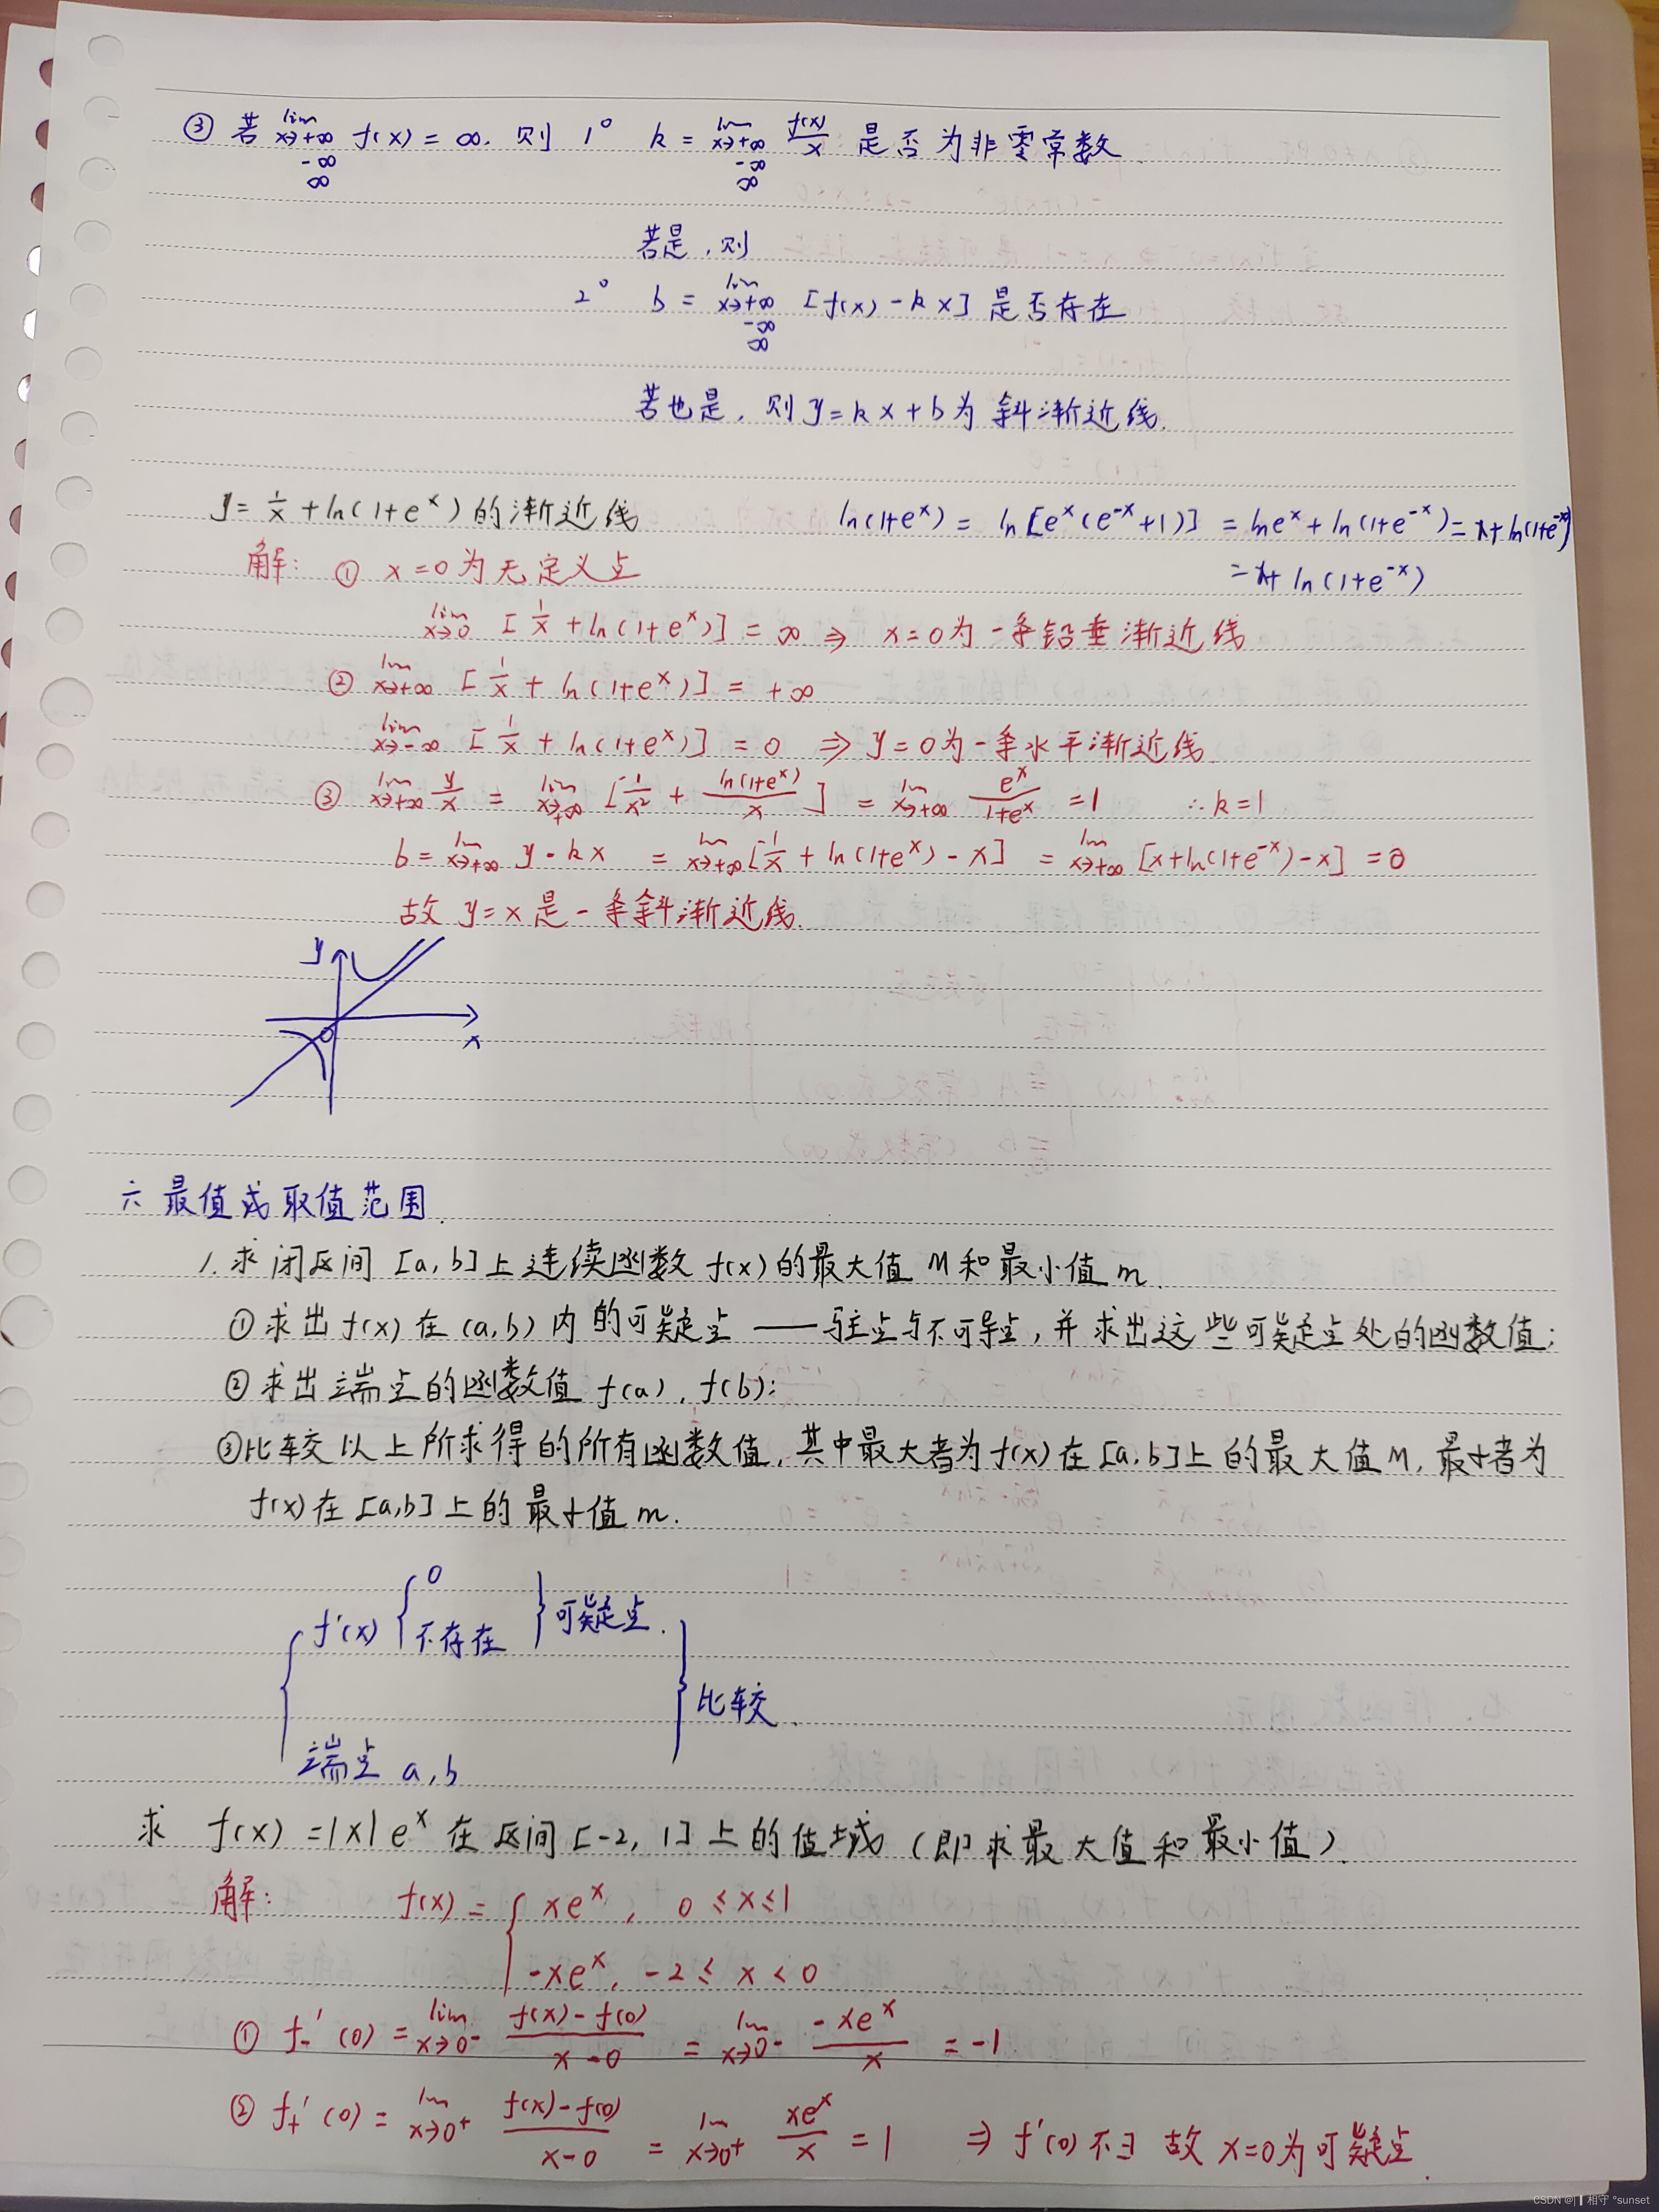 ③ 若 lim x→+∞ -∞ ∞ f(x) = ∞. 则 1° k = lim x→+∞ -∞ ∞ f(x)/x 是否为非零常数
若是,则
2° b = lim x→+∞ -∞ ∞ [f(x) - kx] 是否存在
若也是,则 y=kx+b 为 斜渐近线.
y= 1/x + ln(1+e^x) 的渐近线
ln(1+e^x) = ln[e^x(e^-x+1)] = lne^x + ln(1+e^-x) = x+ ln(1+e^-x)
= x+ ln(1+e^-x)
解: ① x=0 为无定义点
lim x→0 [1/x + ln(1+e^x)] = ∞ ⇒ x=0为一条铅垂渐近线
② lim x→+∞ [1/x + ln(1+e^x)] = +∞
lim x→-∞ [1/x + ln(1+e^x)] = 0 ⇒ y=0为一条水平渐近线
③ lim x→+∞ y/x = lim x→+∞ [1/x² + ln(1+e^x)/x] = lim x→+∞ e^x/(1+e^x) = 1 ∴k=1
b = lim x→+∞ y-kx = lim x→+∞ [1/x + ln(1+e^x) - x] = lim x→+∞ [x+ln(1+e^-x)-x] = 0
故 y=x 是一条斜渐近线.
y
x
六 最值或取值范围.
1. 求闭区间 [a,b] 上连续函数 f(x) 的最大值 M 和最小值 m.
① 求出 f(x) 在 (a,b) 内的可疑点 —— 驻点与不可导点,并求出这些可疑点处的函数值;
② 求出端点的函数值 f(a), f(b);
③ 比较以上所求得的所有函数值,其中最大者为 f(x) 在 [a,b] 上的最大值 M, 最小者为
f(x) 在 [a,b] 上的 最小值 m.
0
f'(x) 不存在 可疑点.
比较.
端点 a,b
求 f(x) = |x|e^x 在区间 [-2, 1] 上的值域 (即求最大值和最小值).
解: f(x) = { xe^x, 0 ≤ x ≤ 1
-xe^x, -2 ≤ x < 0
① f-'(0) = lim x→0- (f(x)-f(0))/(x-0) = lim x→0- -xe^x/x = -1
② f+'(0) = lim x→0+ (f(x)-f(0))/(x-0) = lim x→0+ xe^x/x = 1 ⇒ f'(0) 不∃ 故 x=0为可疑点.
CSDN @ 相守 °sunset